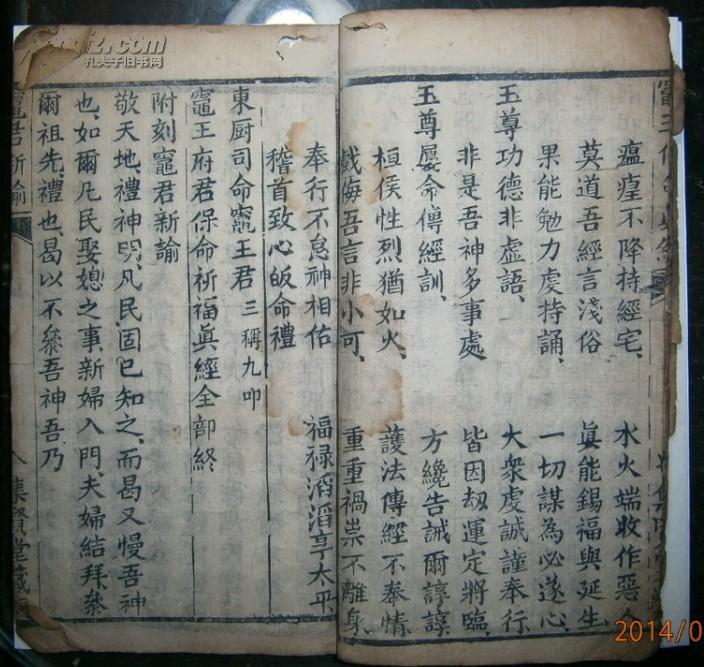 瘟瘽不降持經宅、 水火端收作惡人
莫道吾經言淺俗 眞能錫福與延生
果能勉力虔持誦、 一切謀為必遂心、
玉尊功德非虛語、 大衆虔誠謹奉行、
非是吾神多事處 皆因刼運定將臨、
玉尊屡命傳經訓、 方纔告誡爾諄諄、
桓侯性烈猶如火、 護法傳經不奉情
戯侮吾言非小可、 重重禍祟不離身、
奉行不怠神相佑 福禄滔滔亨太平
稽首致心皈命禮
東厨司命竈王君 三稱九叩
竈王府君保命祈福眞經全部終
附刻竈君新諭
敬天地、禮神明、凡民固已知之、而曷又慢吾神
也、如爾凡民娶媳之事、新婦入門、夫婦結拜、叅
爾祖先、禮也、曷以不叅吾神、吾乃
竈君新諭 八 集賢堂藏
孔夫子旧书网
2014/0